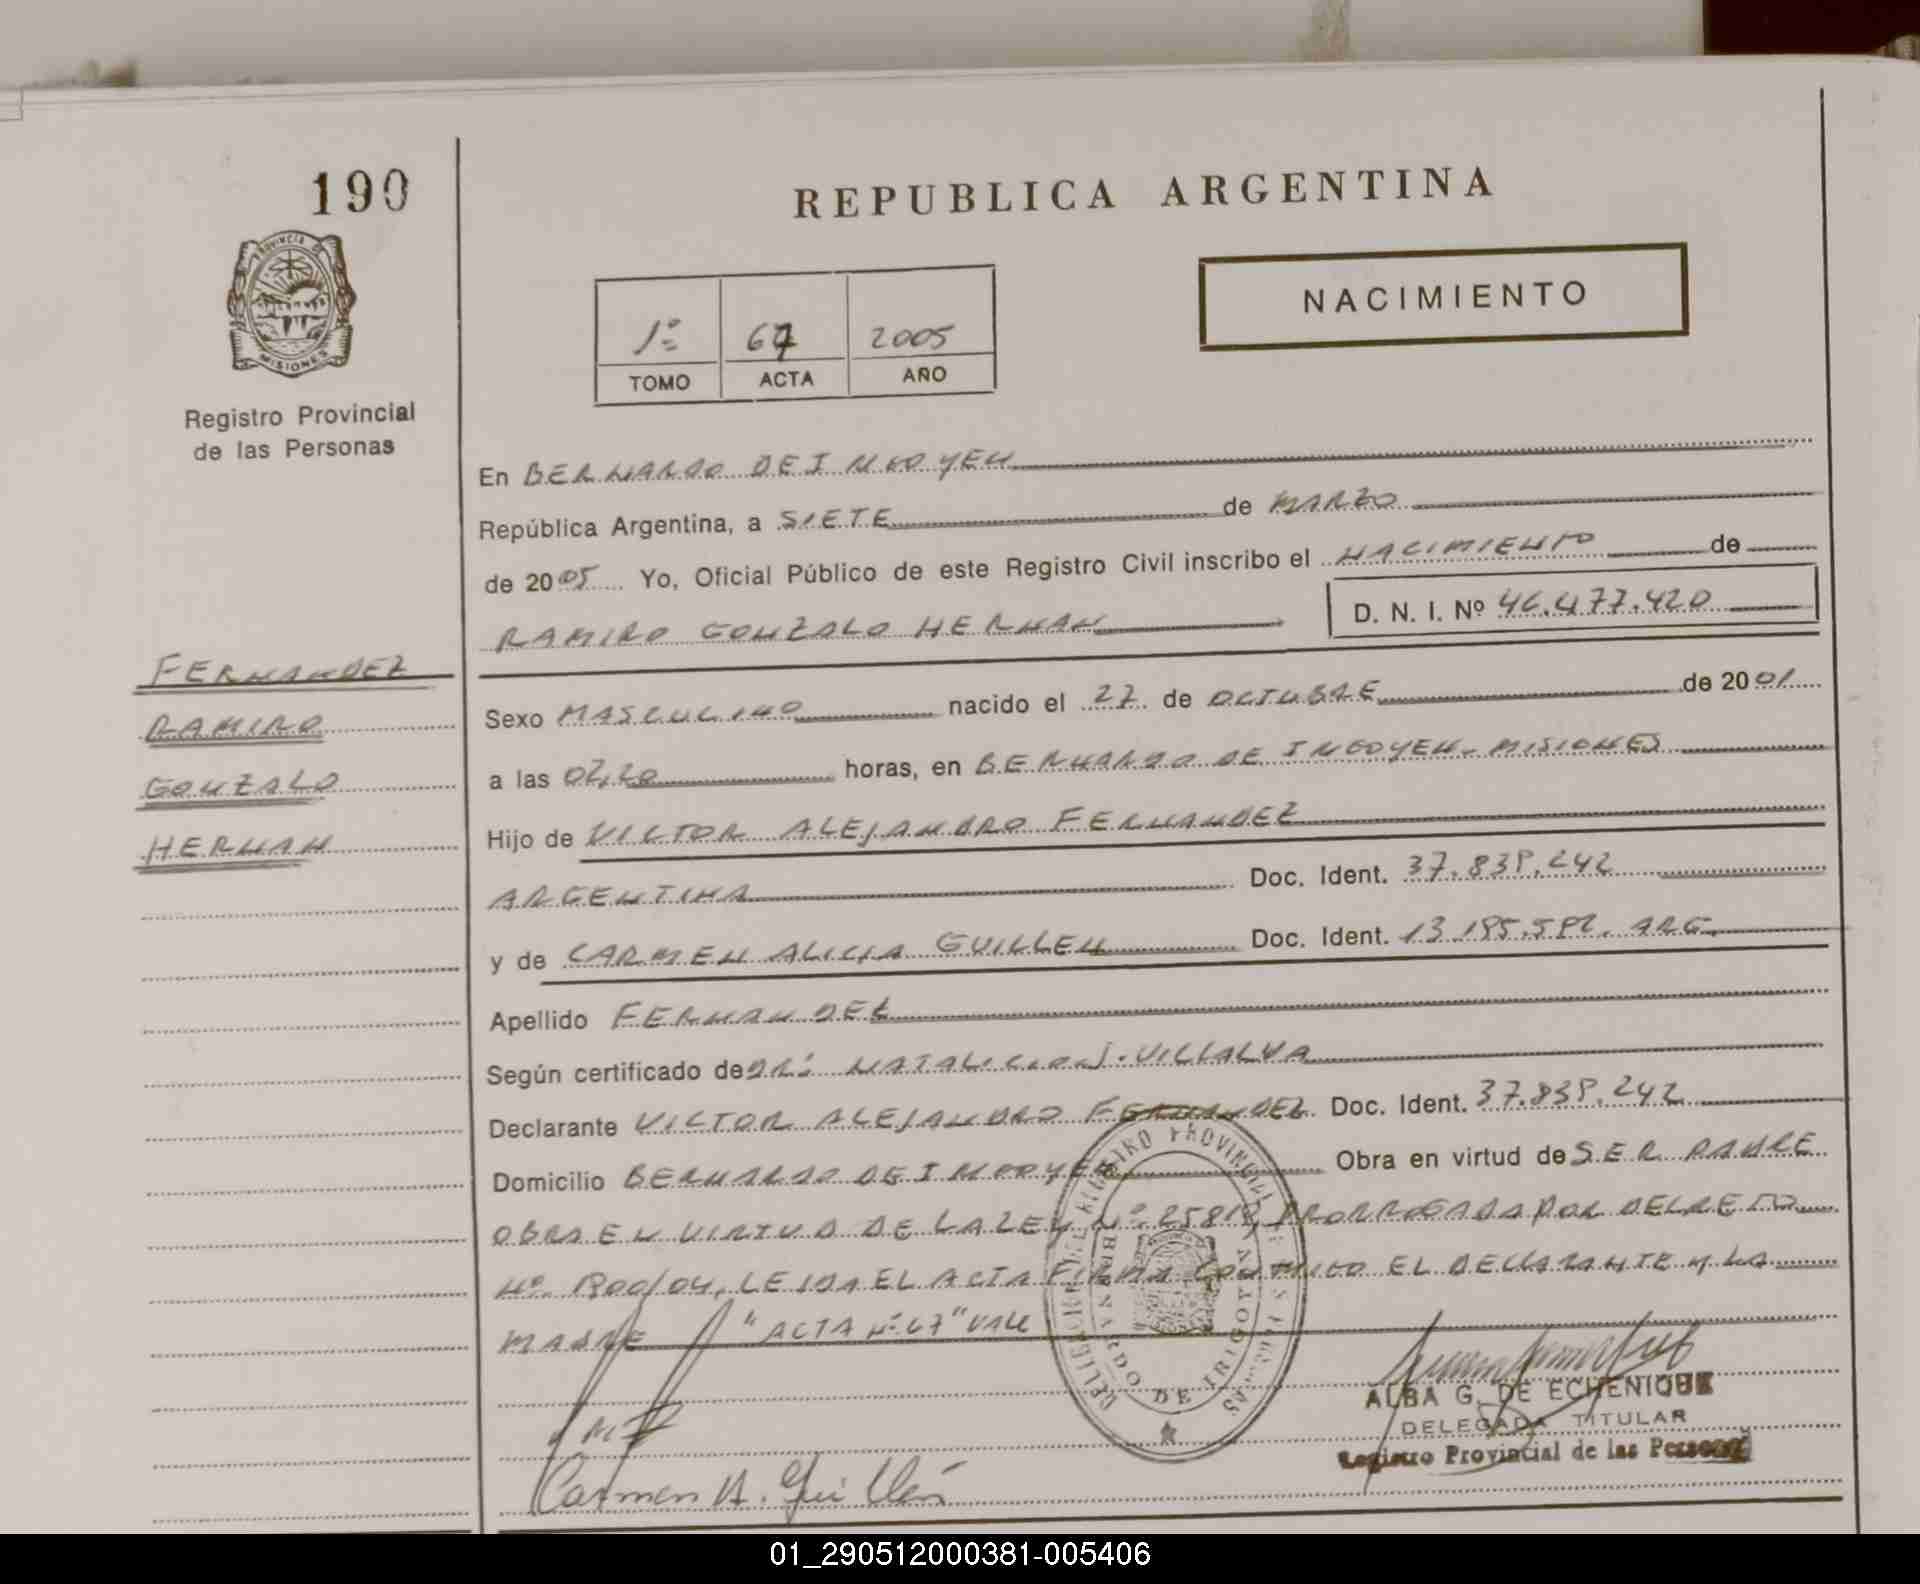 190
REPUBLICA ARGENTINA
PROVINCIA DE MISIONES
NACIMIENTO
1º 67 2005
TOMO ACTA AÑO
Registro Provincial
de las Personas
En BERNARDO DE IRIGOYEN
República Argentina, a SIETE de MARZO
de 2005 Yo, Oficial Público de este Registro Civil inscribo el NACIMIENTO de
RAMIRO GONZALO HERNAN D. N. I. Nº 46.477.420
FERNANDEZ
RAMIRO
GONZALO
HERNAN
Sexo MASCULINO nacido el 27 de OCTUBRE de 2001
a las 02,20 horas, en BERNARDO DE IRIGOYEN - MISIONES
Hijo de VICTOR ALEJANDRO FERNANDEZ
ARGENTINA Doc. Ident. 37.838.242
y de CARMEN ALICIA GUILLEN Doc. Ident. 13.185.582. ARG.
Apellido FERNANDEZ
Según certificado de DR: NATALICIO J. VILLALVA
Declarante VICTOR ALEJANDRO FERNANDEZ Doc. Ident. 37.838.242
Domicilio BERNARDO DE IRIGOYEN Obra en virtud de SER PADRE
OBRA EN VIRTUD DE LA LEY Nº 25819, PRORROGADA POR DECRETO
Nº 1800/04, LEIDA EL ACTA FIRMA CONMIGO EL DECLARANTE Y LA
MADRE "ACTA Nº 67" VALE
BERNARDO DE IRIGOYEN
ALBA G. DE ECHENIQUE
DELEGADA TITULAR
Registro Provincial de las Personas
Carmen A. Guillén
01_290512000381-005406